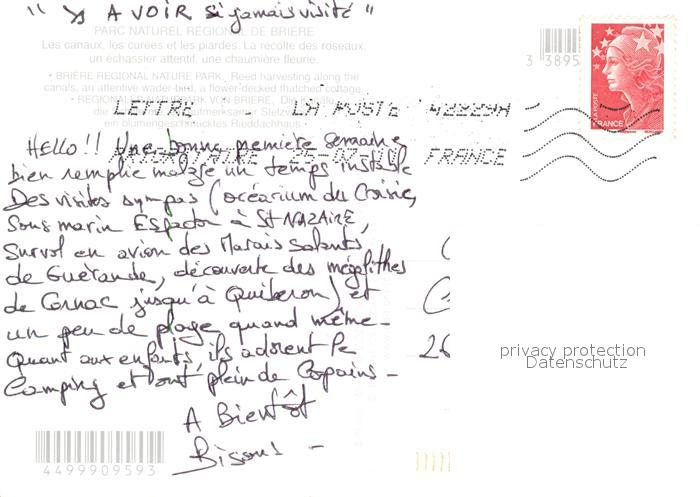 " ↘ A VOIR si jamais visité "
PARC NATUREL REGIONAL DE BRIERE
Les canaux, les curées et les piardes. La récolte des roseaux,
un échassier attentif, une chaumière fleurie.
• BRIÈRE REGIONAL NATURE PARK. Reed harvesting along the
canals, an attentive wader-bird, a flower-decked thatched cottage.
• REGIONALER NATURPARK VON BRIERE. Die
ein blumengeschmücktes Rieddachhaus.
3 3895
LA POSTE
FRANCE
LETTRE - LA POSTE 42829A
FRANCE
HELLO !! Une bonne première semaine
bien remplie malgré un temps instable
Des visites sympas (océarium du Croisic,
Sous marin Espadon à St NAZAIRE,
Survol en avion des Marais Salants
de Guérande, découverte des mégalithes
de Carnac jusqu'à Quiberon) et
un peu de plage quand même -
Quant aux enfants, ils adorent le
Camping et ont plein de Copains -
A Bientôt
Bisous -
26
privacy protection
Datenschutz
4499909593